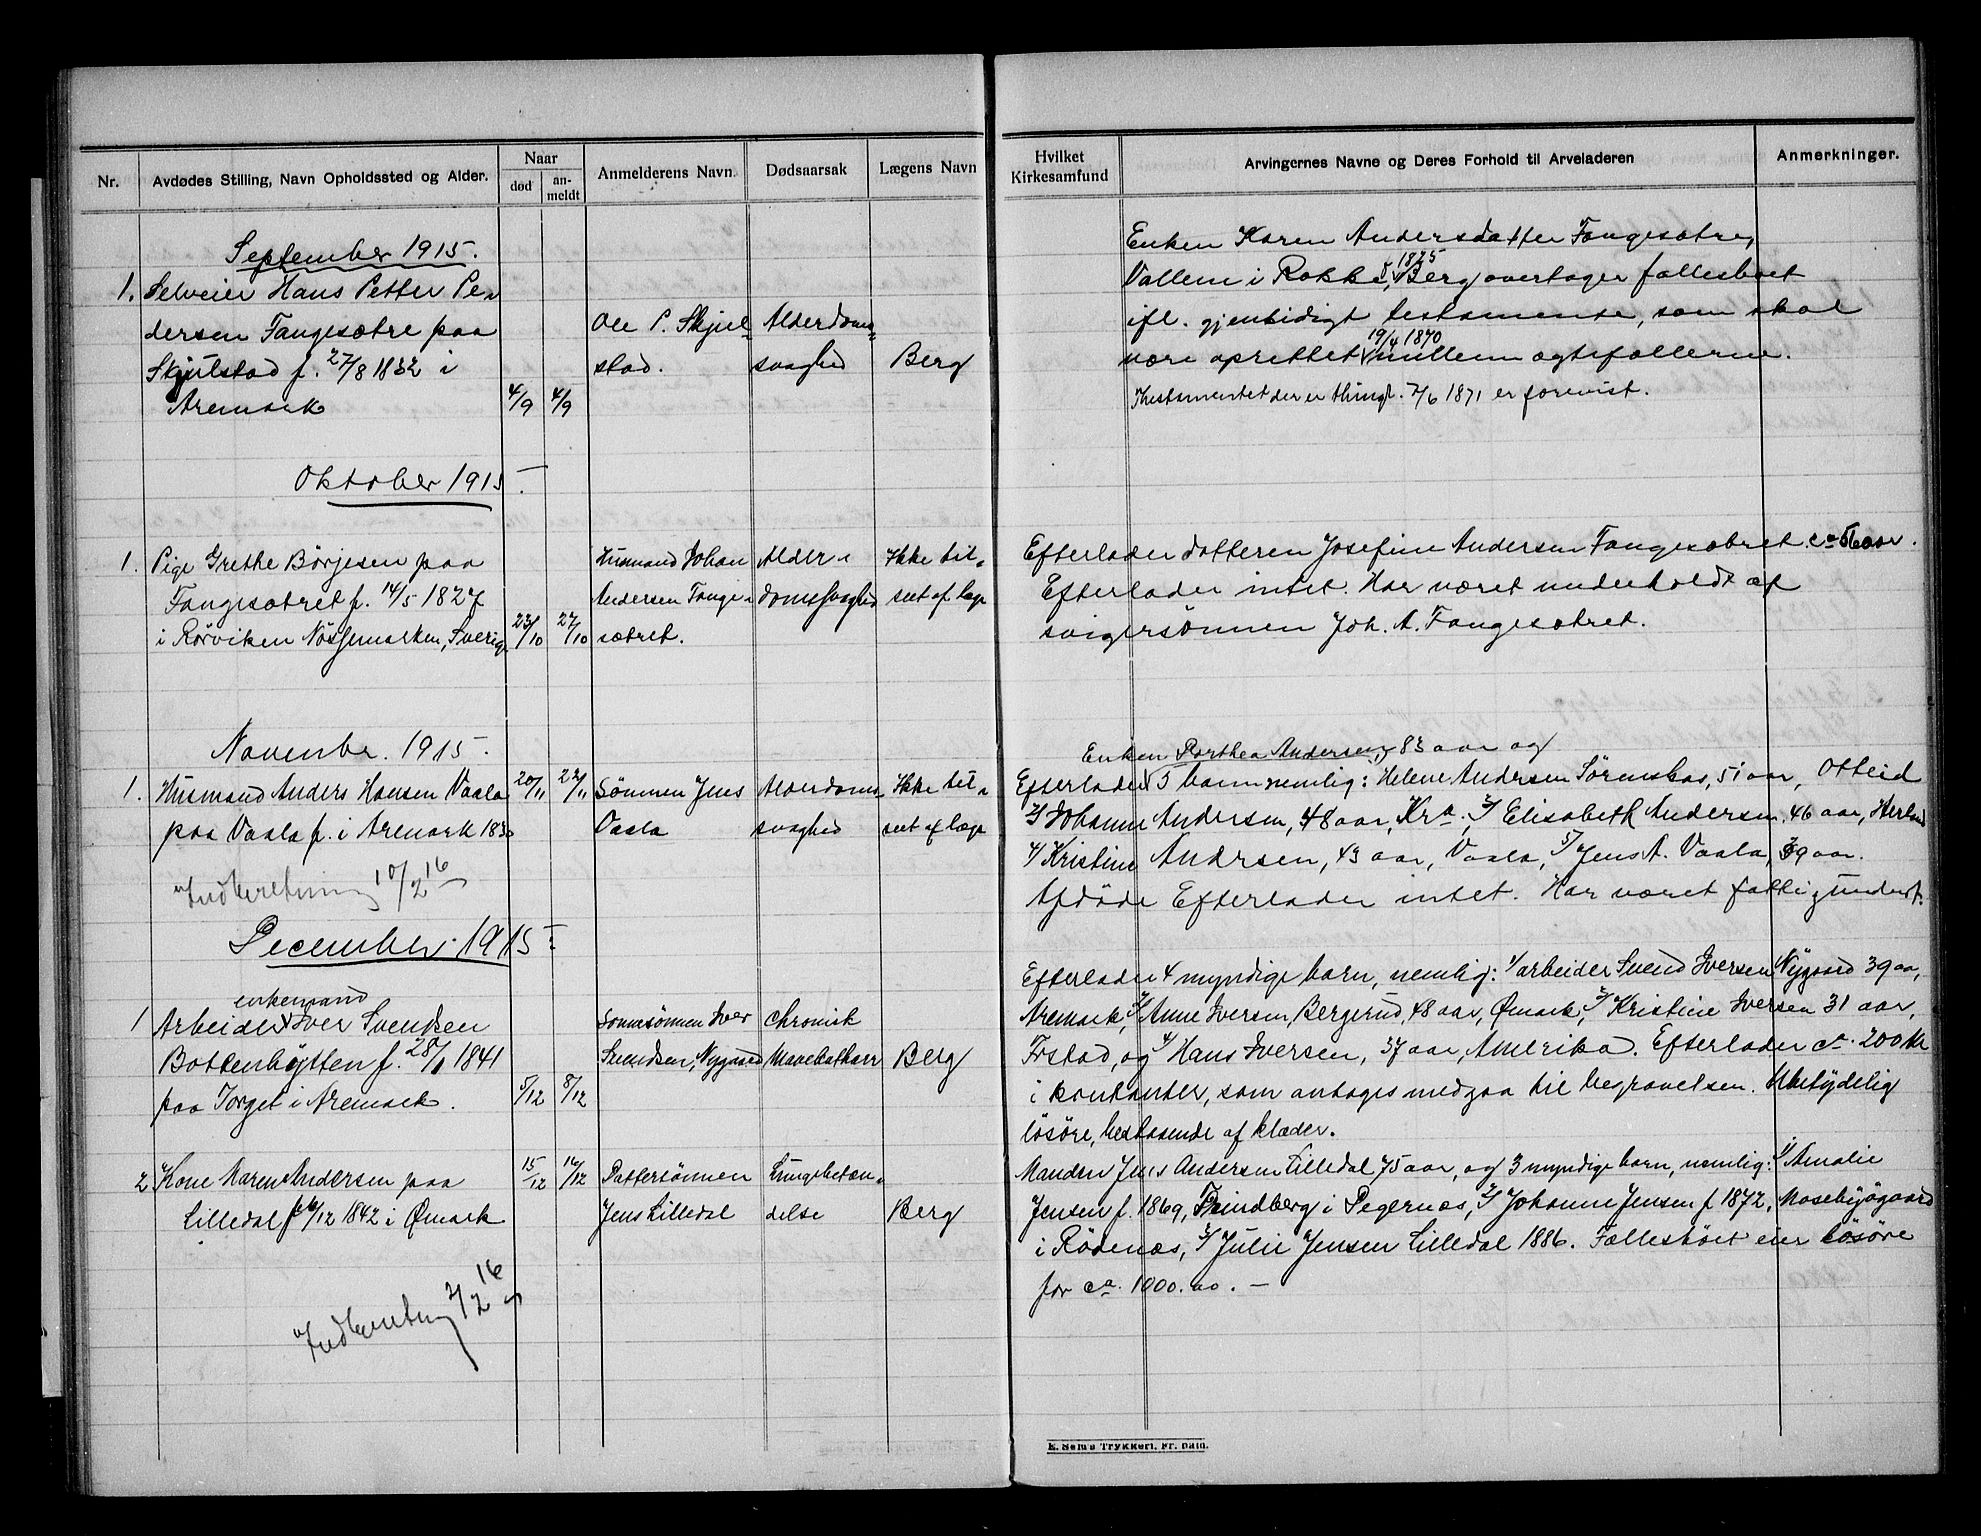 Nr.
Avdødes Stilling, Navn Opholdssted og Alder.
Naar
død
an-
meldt
Anmelderens Navn.
Dødsaarsak
Lægens Navn
Hvilket
Kirkesamfund
Arvingernes Navne og Deres Forhold til Arveladeren
Anmerkninger.
September 1915.
1. Selveier Hans Petter Pe-
dersen Fangesætre paa
Skjulstad f. 27/8 1832 i
Aremark
4/9 4/9
Ole P. Skjul-
stad.
Alderdoms-
svaghed
Berg
Enken Karen Andersdatter Fangesætre,
Vallem i Rokke, f. 1825 Berg overtager fællesboet
ifl. gjensidigt testamente, som skal
være oprettet 19/4 1870 mellem ægtefællerne.
Testamentet der er thingl. 7/6 1871 er forevist.
Oktober 1915.
1. Pige Grethe Börjesen paa
Fangesætret f. 14/5 1827
i Rörviken Nössemarken, Sverig.
23/10 27/10
Husmand Johan
Andersen Fange-
sætret.
Alder-
domssvaghed
Ikke til-
seet af læge
Efterlader datteren Josefine Andersen Fangesætret ca 56 aar.
Efterlader intet. Har været underholdt af
svigersönnen Joh. A. Fangesætret.
Novembr. 1915.
1. Husmand Anders Hansen Vaala
paa Vaala f. i Aremark 1830
20/11 22/11
Sönnen Jens
Vaala
Alderdoms-
svaghed
Ikke til-
seet af læge
Enken Dorthea Andersen, 83 aar og
Efterlader 5 barn nemlig: Helene Andersen Sörensbas, 51 aar, Otteid
2/ Johanne Andersen, 48 aar, Kra. 3/ Elisabeth Andersen, 46 aar, Herland
4/ Kristine Andrsen, 43 aar, Vaala, 5/ Jens A. Vaala, 39 aar.
Afdöde Efterlader intet. Har været fattigunderst.
Indberetning 10/2 16
December 1915.
enkemand
1 Arbeider Iver Svendsen
Bottenhytten f. 28/1 1841
paa Torget i Aremark.
5/12 8/12
Sonnesönnen Iver
Svendsen, Nygaard
Chronisk
Mavekatharr
Berg
Efterlader 4 myndige barn, nemlig: 1/ arbeider Svend Iversen Nygaard 39 aar,
Aremark, 2/ Anne Iversen, Bergerud, 48 aar, Ømark, 3/ Kristine Iversen 31 aar,
Frstad, og 4/ Hans Iversen, 37 aar, Amerika. Efterlader ca. 200 kr
i kontanter, som antages medgaa til begravelsen. Ubetydelig
lösöre, bestaaende af klæder.
2 Kone Maren Andersen paa
Lilledal f. 12 1842 i Ømark
15/12 16/12
Dattersönnen
Jens Lilledal
Lungebetæn-
delse
Berg
Manden Jens Andersen Lilledal 75 aar, og 3 myndige barn, nemlig: 1/ Amalie
Jensen f. 1869, i Degernæs, 2/ Johanne Jensen f 1872, Mosebygaard
i Rödenæs, 3/ Julie Jensen Lilledal 1886. Fællesböet eier lösöre
for ca. 1000.00. —
Indberetning 2/2 16
E. Sem's Trykkeri, Fr.hald.